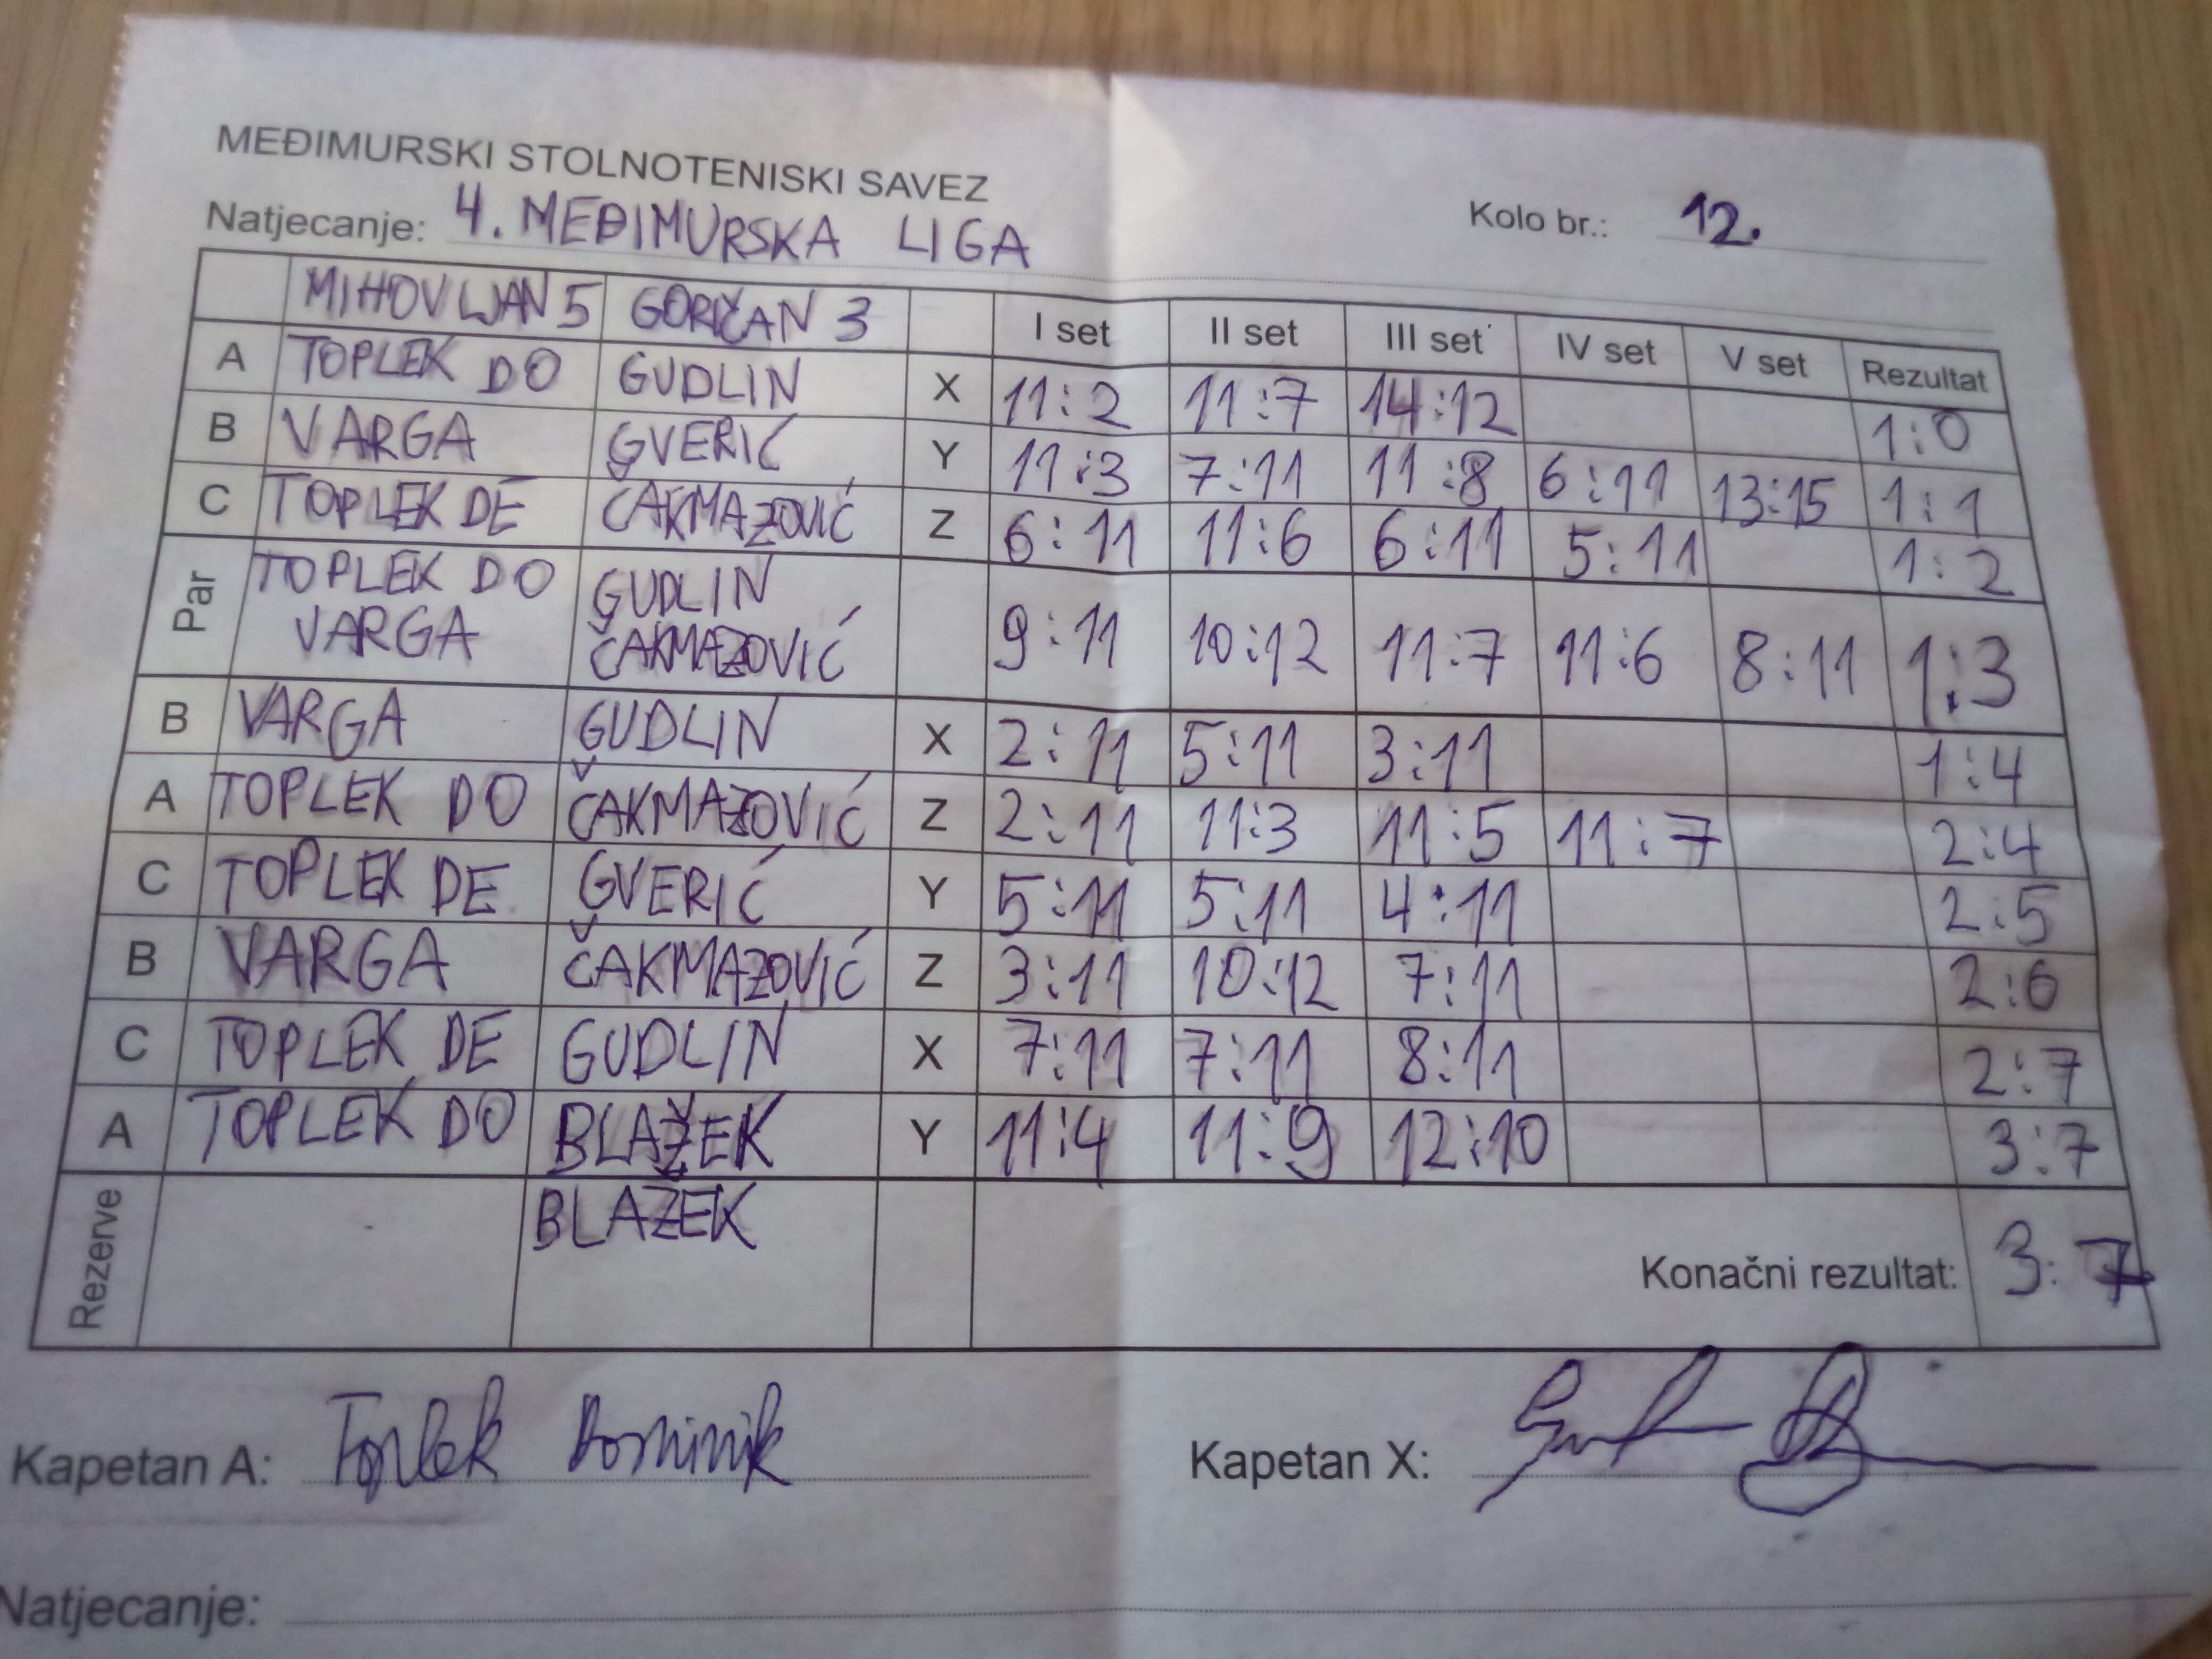 MEĐIMURSKI STOLNOTENISKI SAVEZ
Natjecanje: 4. MEĐIMURSKA LIGA Kolo br.: 12.
MIHOVLJAN 5 GORIČAN 3 I set II set III set IV set V set Rezultat
A TOPLEK DO GUDLIN X 11:2 11:7 14:12 1:0
B VARGA GVERIĆ Y 11:3 7:11 11:8 6:11 13:15 1:1
C TOPLEK DE ČAKMAZOVIĆ Z 6:11 11:6 6:11 5:11 1:2
Par TOPLEK DO GUDLIN 9:11 10:12 11:7 11:6 8:11 1:3
VARGA ČAKMAZOVIĆ
B VARGA GUDLIN X 2:11 5:11 3:11 1:4
A TOPLEK DO ČAKMAZOVIĆ Z 2:11 11:3 11:5 11:7 2:4
C TOPLEK DE GVERIĆ Y 5:11 5:11 4:11 2:5
B VARGA ČAKMAZOVIĆ Z 3:11 10:12 7:11 2:6
C TOPLEK DE GUDLIN X 7:11 7:11 8:11 2:7
A TOPLEK DO BLAŽEK Y 11:4 11:9 12:10 3:7
Rezerve BLAŽEK
Konačni rezultat: 3:7
Kapetan A: Toplek Dominik Kapetan X:
Natjecanje: